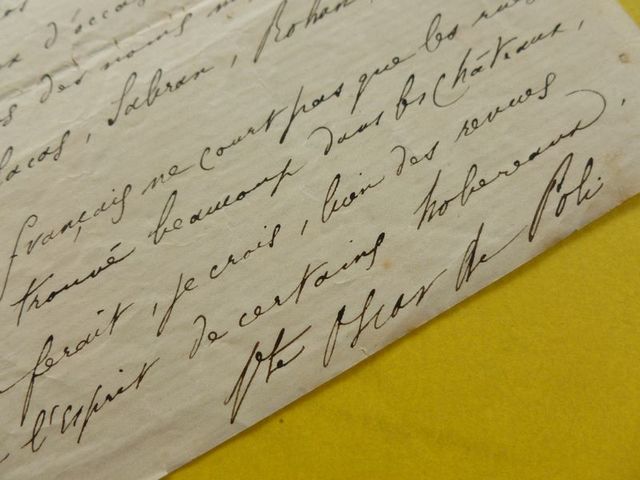 d'occas
des noms
lacas, Sabran, Rohan,
français ne court pas que les rues
trouvé beaucoup dans les châteaux,
ferait, je crois, bien des revues
l'esprit de certains hobereaux.
Vte Oscar de Poli